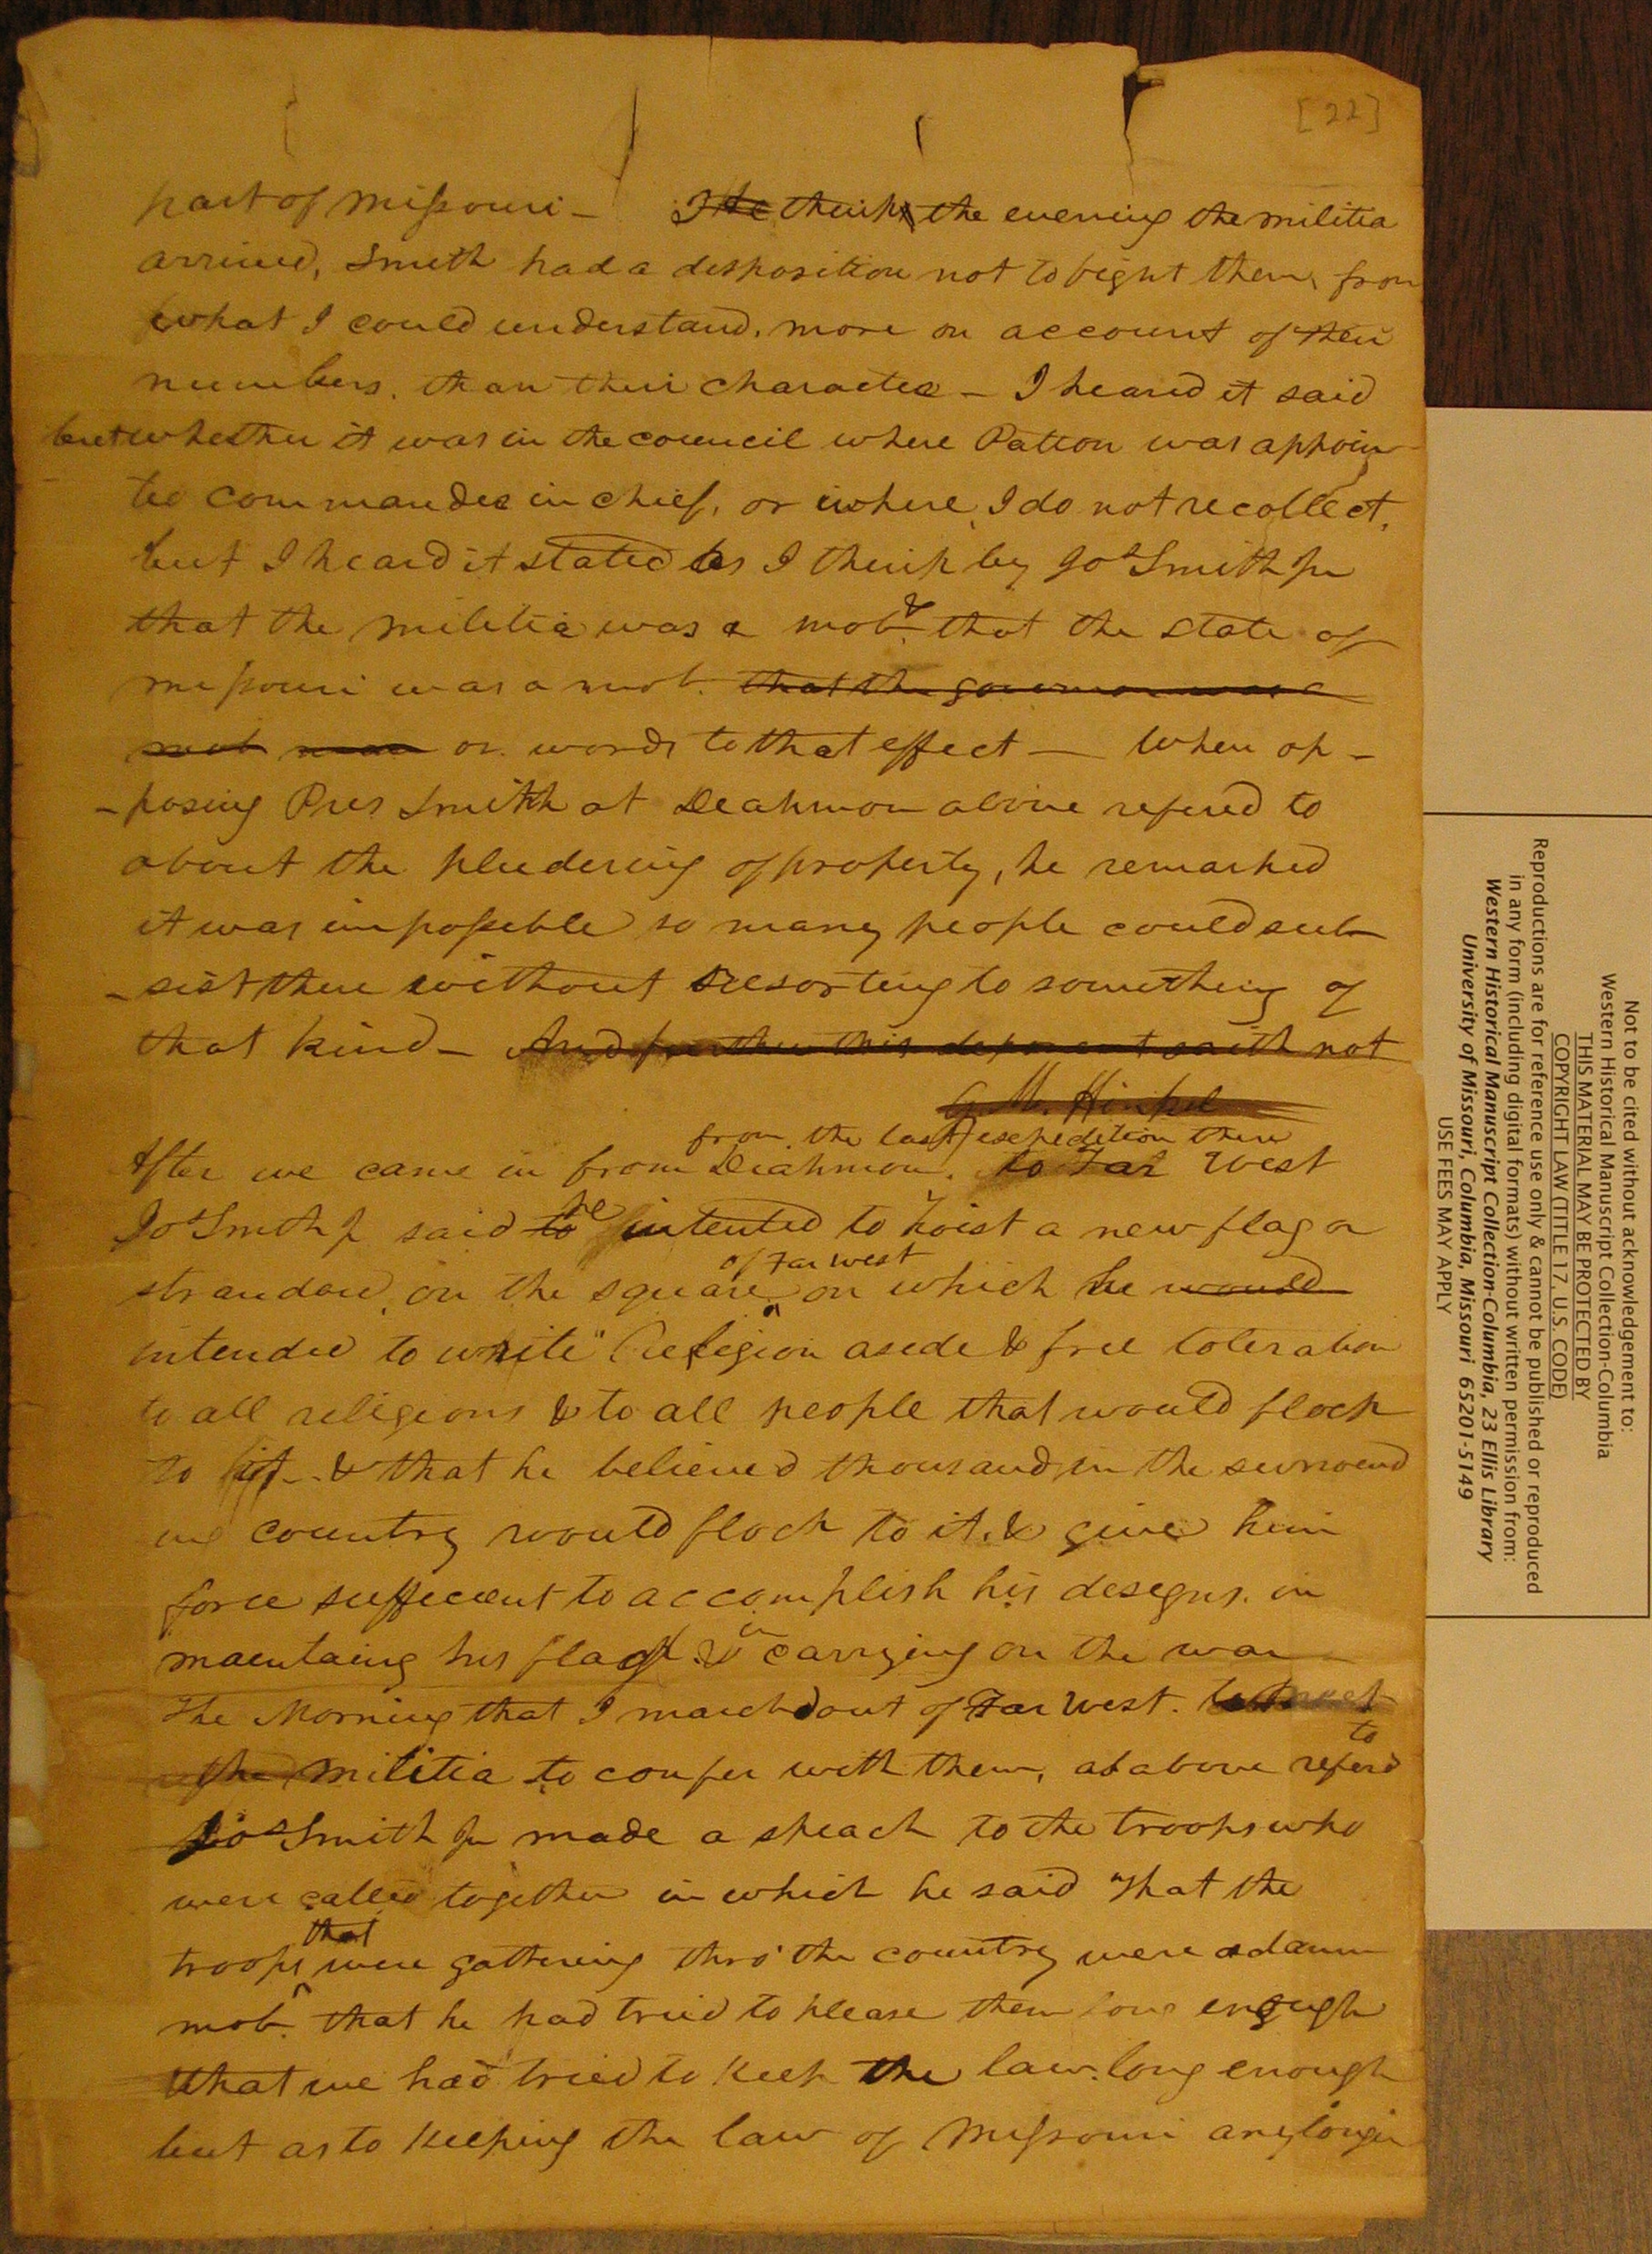 [22]
part of Missouri — I He thinks the evening the militia
arrived, Smith had a disposition not to fight them, from
what I could understand, more on account of their
numbers, than their character — I heard it said
but whether it was in the council where Patton was appoin-
ted commander in chief, or where, I do not recollect,
but I heard it stated as I think by Jos Smith Jr
that the militia was a mob, & that the state of
Missouri was a mob. that the governor was a
mob or words to that effect — When op-
-posing Pres Smith at Deahmon above refered to
about the pludering of property, he remarked
it was impossible so many people could sub
-sist there without resorting to something of
that kind — And further this deponent saith not
G. M. Hinkel
from the last expedition there
After we came in from Diahmon, to Far West
Jos Smith Jr said to he intented to hoist a new flag or
strandard, on the square of Far West on which he would
intended to write "Religion aside & free toleration
to all religions & to all people that would flock
to it — & that he believed thousands in the surround
ing country would flock to it, & give him
force suffecient to accomplish his designs, in
maintaing his flag & in carrying on the war —
The Morning that I marchd out of Far West. to meet
the militia to confer with them, as above referd to
Jos Smith Jr made a speach to the troops who
were called together in which he said "that the
troops that were gathering thro' the country were a damn
mob, that he had tried to please them long enough
that we had tried to keep the law long enough
but as to keeping the law of Missouri any longer
Not to be cited without acknowledgement to:
Western Historical Manuscript Collection-Columbia
THIS MATERIAL MAY BE PROTECTED BY
COPYRIGHT LAW (TITLE 17, U.S. CODE)
Reproductions are for reference use only & cannot be published or reproduced
in any form (including digital formats) without written permission from:
Western Historical Manuscript Collection-Columbia, 23 Ellis Library
University of Missouri, Columbia, Missouri 65201-5149
USE FEES MAY APPLY